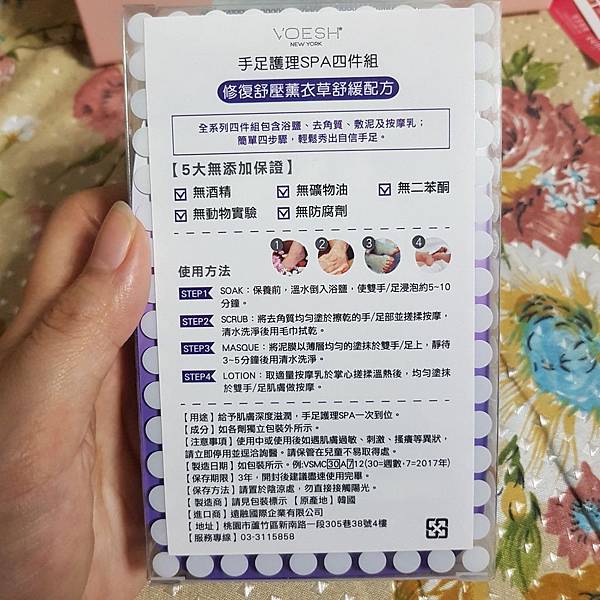 VOESH®
NEW YORK
手足護理SPA四件組
修復舒壓薰衣草舒緩配方
全系列四件組包含浴鹽、去角質、敷泥及按摩乳；
簡單四步驟，輕鬆秀出自信手足。
【5大無添加保證】
無酒精 無礦物油 無二苯酮
無動物實驗 無防腐劑
1 2 3 4
使用方法
STEP1 SOAK：保養前，溫水倒入浴鹽，使雙手/足浸泡約5~10
分鐘。
STEP2 SCRUB：將去角質均勻塗於擦乾的手/足部並搓揉按摩，
清水洗淨後用毛巾拭乾。
STEP3 MASQUE：將泥膜以薄層均勻的塗抹於雙手/足上，靜待
3~5分鐘後用清水洗淨。
STEP4 LOTION：取適量按摩乳於掌心搓揉溫熱後，均勻塗抹
於雙手/足肌膚做按摩。
【用途】給予肌膚深度滋潤，手足護理SPA一次到位。
【成分】如各劑獨立包裝外所示。
【注意事項】使用中或使用後如遇肌膚過敏、刺激、搔癢等異狀，
請立即停用並逕洽詢醫。請保管在兒童不易取得處。
【製造日期】如包裝所示。例:VSMC30A712(30=週數，7=2017年)
【保存期限】3年，開封後建議盡速使用完畢。
【保存方法】請置於陰涼處，勿直接接觸陽光。
【製造商】請見包裝標示【原產地】韓國
【進口商】遠融國際企業有限公司
【地址】桃園市蘆竹區新南路一段305巷38號4樓
【服務專線】03-3115858